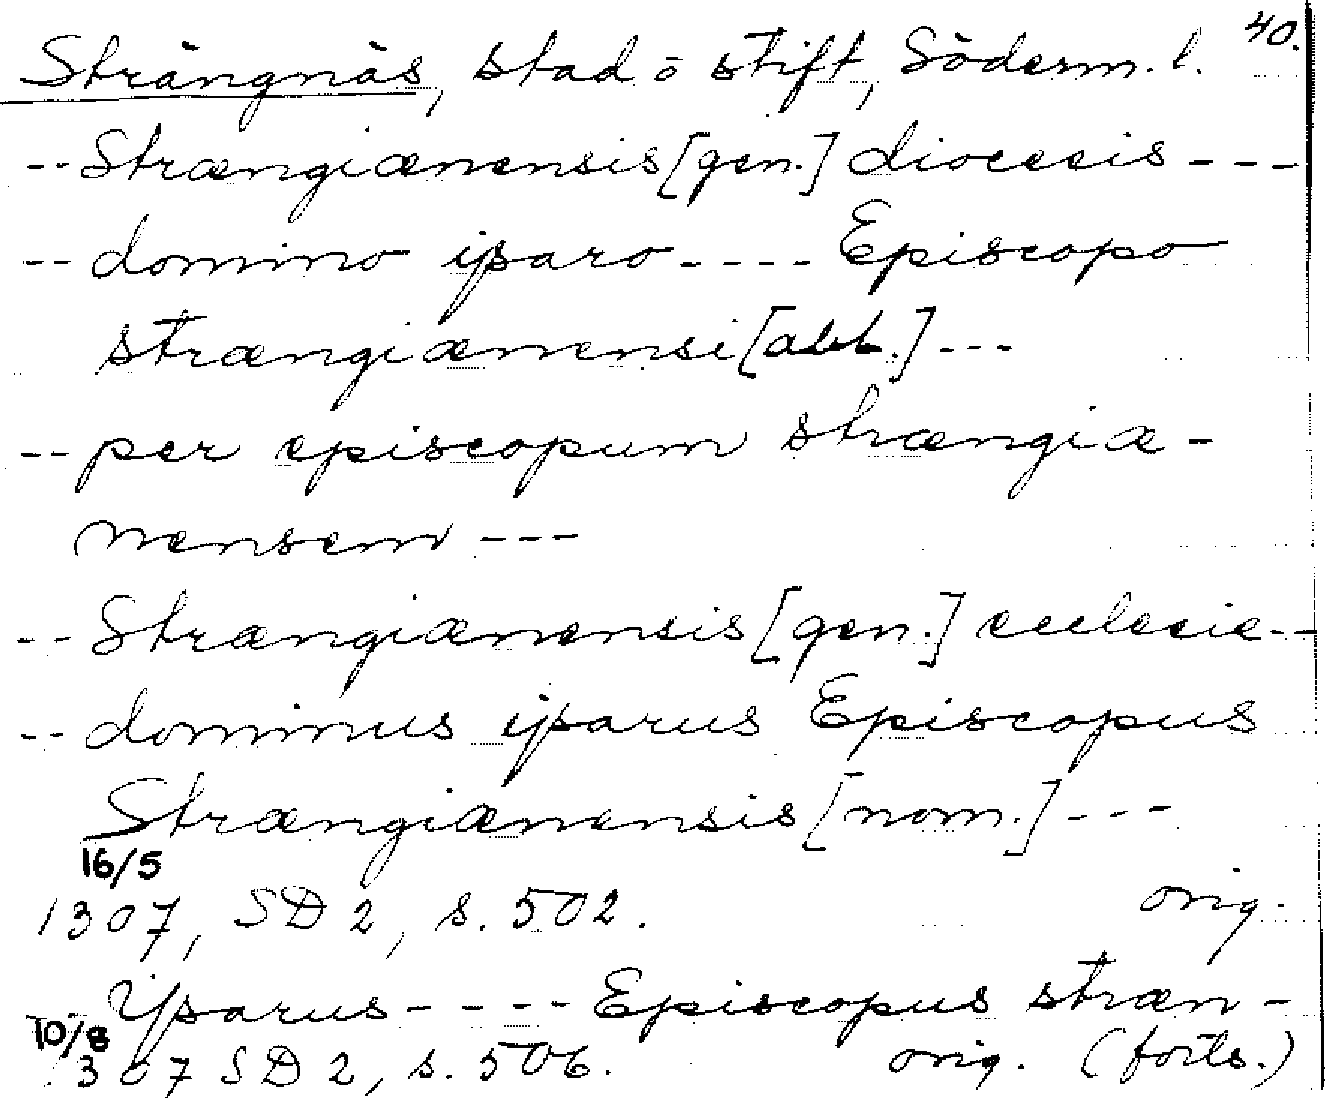 40.
Strängnäs, stad o stift, Söderm. l.
-- Strængiænensis [gen.] diocesis ---
-- domino ysaro ---- Episcopo
strængiænensi [abl.] ---
-- per episcopum strængiæ-
nensem ---
-- Strængiænensis [gen.] ecclesie --
-- dominus ysarus Episcopus
Strængiænensis [nom.] ---
16/5
1307, SD 2, s. 502. orig.
-- Ysarus ---- Episcopus stræn-
10/8
1307 SD 2, s. 506. orig. (forts.)